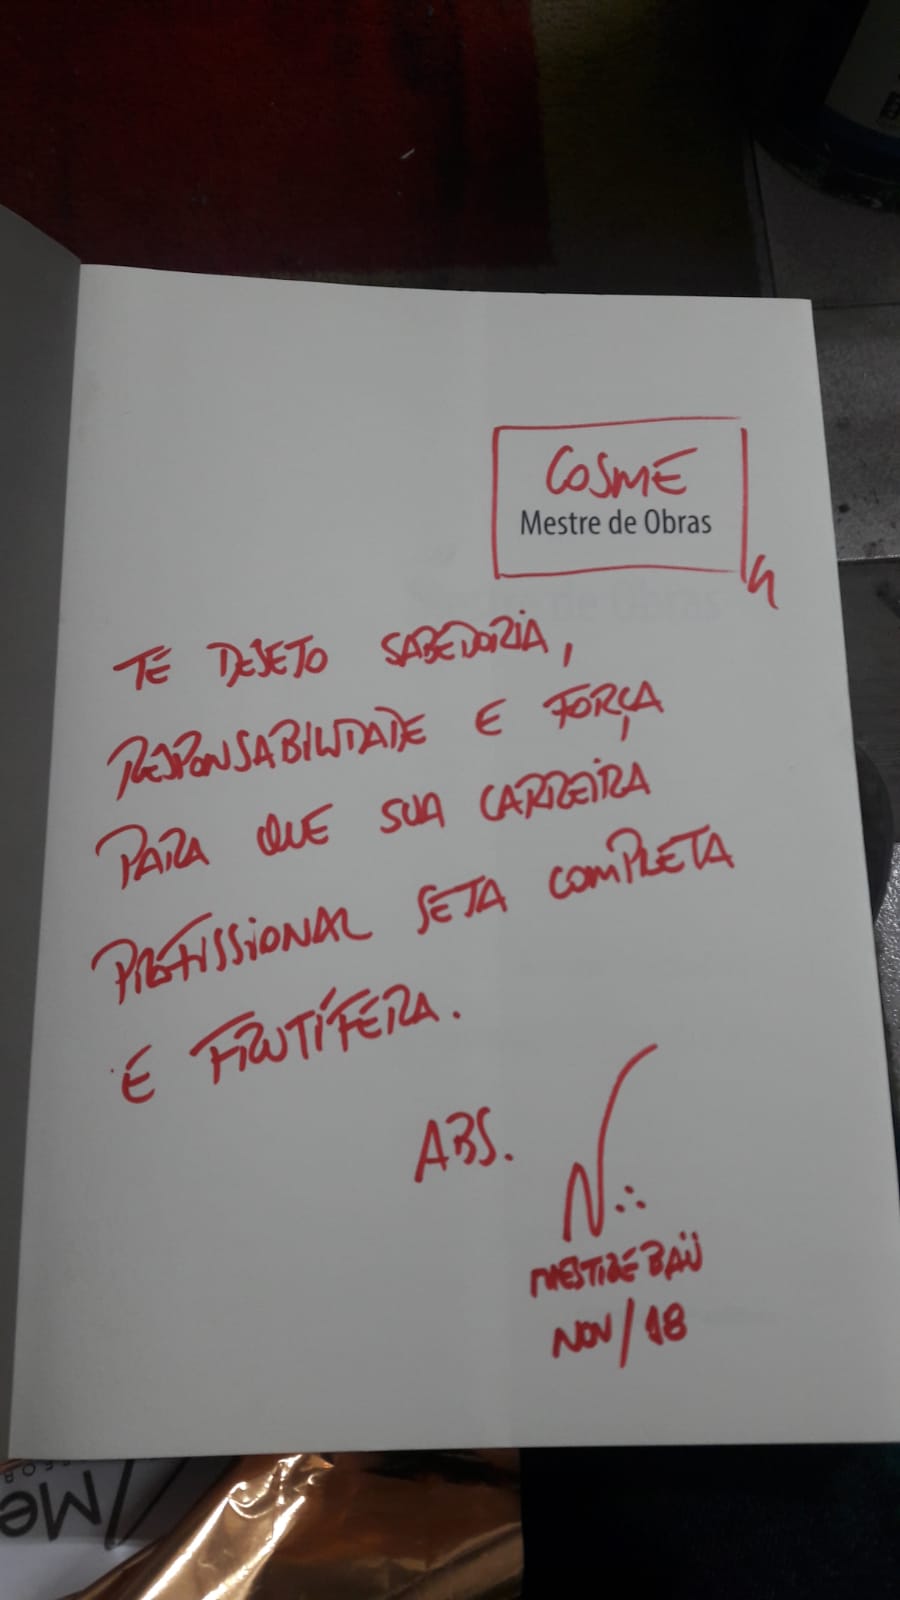 COSME
Mestre de Obras
TE DESEJO SABEDORIA,
RESPONSABILIDADE E FORÇA
PARA QUE SUA CARREIRA
PROFISSIONAL SEJA COMPLETA
E FRUTÍFERA.
ABS.
MESTRE BAÚ
NOV/18
Me